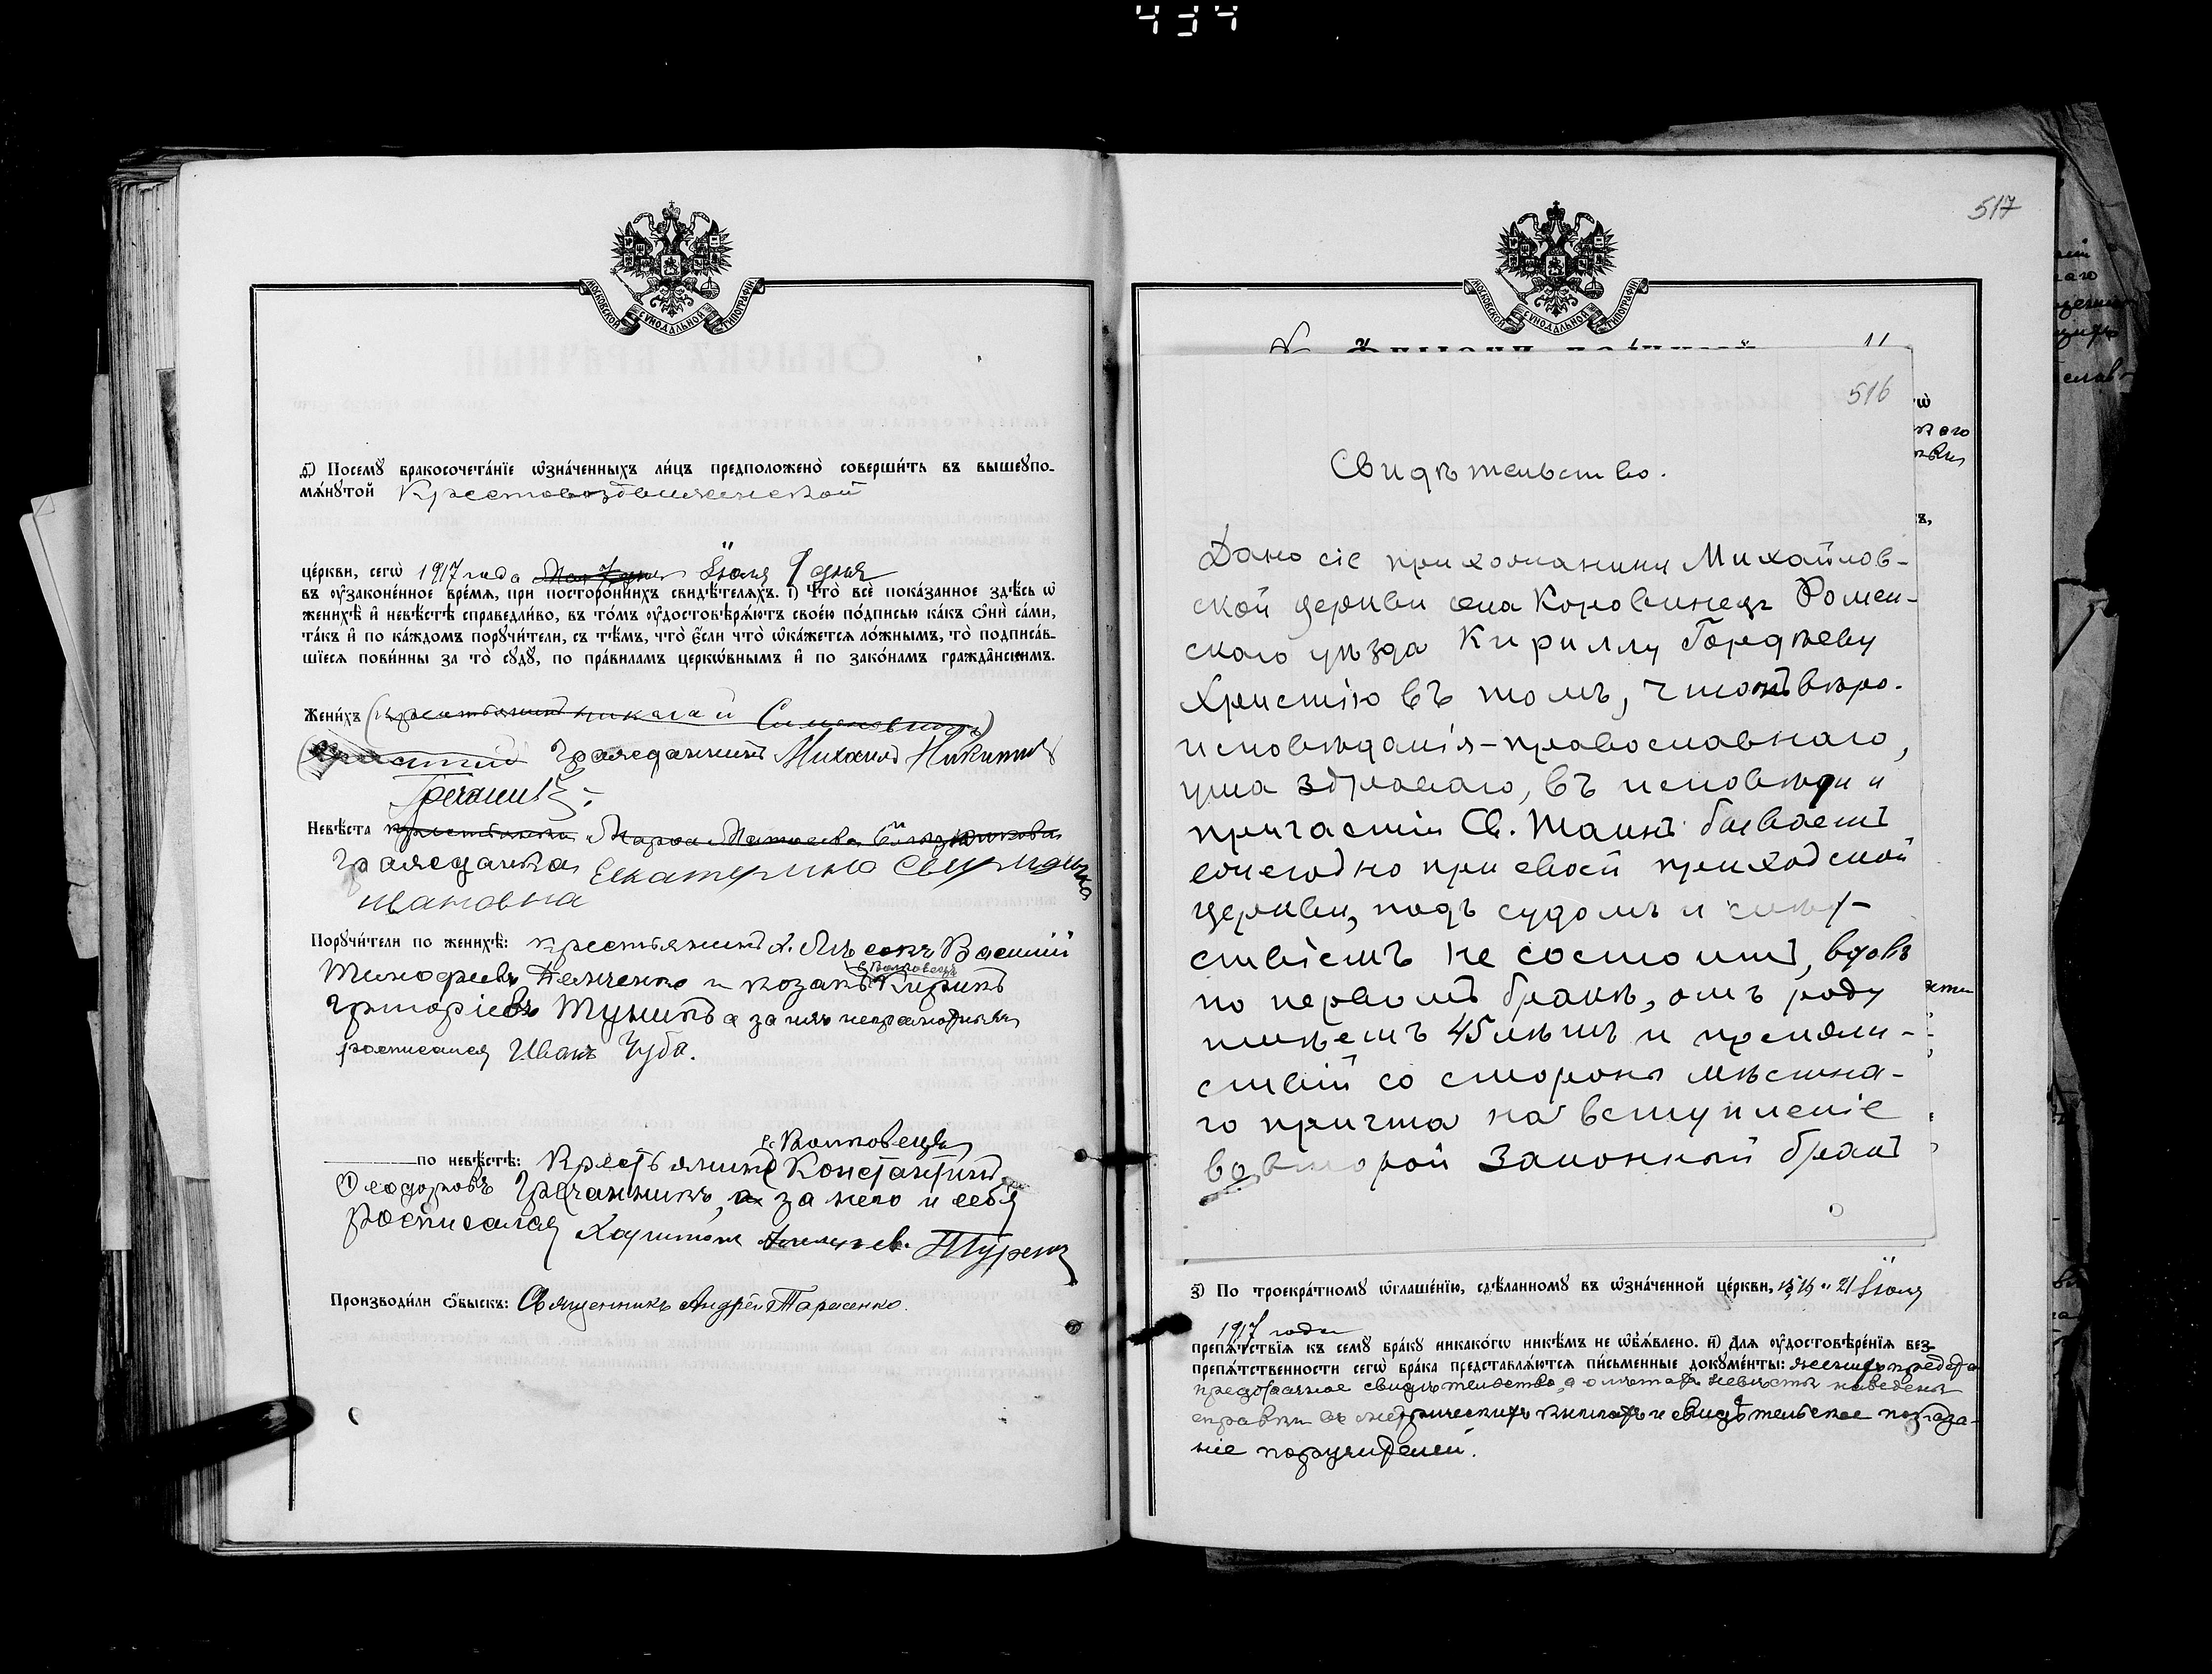 434
МОСКОВСКОЙ СѴНОДАЛЬНОЙ ТИПОГРАФІИ
ѕ҃) Посемꙋ̀ бракосочета́нїе ѡ҆зна́ченныхъ ли́цъ предположено̀ соверши́ть въ вышеꙋпо-
мѧ́нꙋтой Крестовоздвиженской
це́ркви, сегѡ̀ 1917 года Іюля 9 дня
въ ᲂу҆зако́ненное вре́мѧ, при посторо́ннихъ свидѣ́телѧхъ. і҃) Что̀ всѐ пока́занное здѣ́сь ѡ҆
женихѣ̀ и҆ невѣ́стѣ справедли́во, въ то́мъ ᲂу҆достовѣрѧ́ютъ свое́ю по́дписью ка́къ ѻ҆нѝ са́ми,
та́къ и҆ по ка́ждомъ порꙋчи́тели, съ тѣ́мъ, что̀ є҆́сли что̀ ѡ҆ка́жетсѧ ло́жнымъ, то̀ подписа́в-
шїесѧ пови́нны за то̀ сꙋдꙋ̀, по пра́виламъ церко́внымъ и҆ по зако́намъ гражда́нскимъ.
Жени́хъ (крестьянинъ Николай Симеоновичъ)
гражданинъ Михаилъ Никитинъ
Гречаникъ.
Невѣ́ста Марѳа Матѳеева
гражданка Екатерина Свириденко
ивановна
Порꙋчи́тели по женихѣ̀: крестьянинъ Василій
Тимофеевъ и козакъ с. Волковецъ Кирилъ
Григоріевъ а за нихъ неграмотныхъ
росписался Иванъ Чуба.
с. Волковецъ
по невѣ́стѣ: Крестьянинъ Константинъ
Ѳеодоровъ Гречанникъ, а за него и себя
росписался Харитонъ
Производи́ли ѻ҆́быскъ: Священникъ Андрей Тарасенко.
517
МОСКОВСКОЙ СѴНОДАЛЬНОЙ ТИПОГРАФІИ
516
Свидѣтельство.
Дано сіе прихожанину Михайлов-
ской церкви села Коровинецъ Ромен-
скаго уѣзда Кириллу Гордѣеву
Христію въ томъ, что онъ вѣро-
исповѣданія-православнаго,
ума здраваго, въ исповѣди и
причастіи Св. Таинъ бываетъ
ежегодно при своей приходской
церкви, подъ судомъ и слѣд-
ствіемъ не состоитъ, вдовъ
по первомъ бракѣ, отъ роду
имѣетъ 45 лѣтъ и препят-
ствій со стороны мѣстна-
го причта на вступленіе
во второй законный бракъ
з҃) По троекра́тномꙋ ѡ҆глаше́нїю, сдѣ́ланномꙋ въ ѡ҆зна́ченной це́ркви, и 21 Іюня
1917 года
препѧ́тствїѧ къ семꙋ̀ бра́кꙋ никако́гѡ никѣ́мъ не ѡ҆б̾ѧ́влено. и҃) Длѧ ᲂу҆достовѣре́нїѧ без-
препѧ́тственности сегѡ̀ бра́ка представлѧ́ютсѧ пи́сьменные докꙋме́нты:
предбрачное свидѣтельство, о лѣтахъ невѣсты наведены
справки въ метрическихъ книгахъ и свидѣтельское показа-
ніе поручителей.